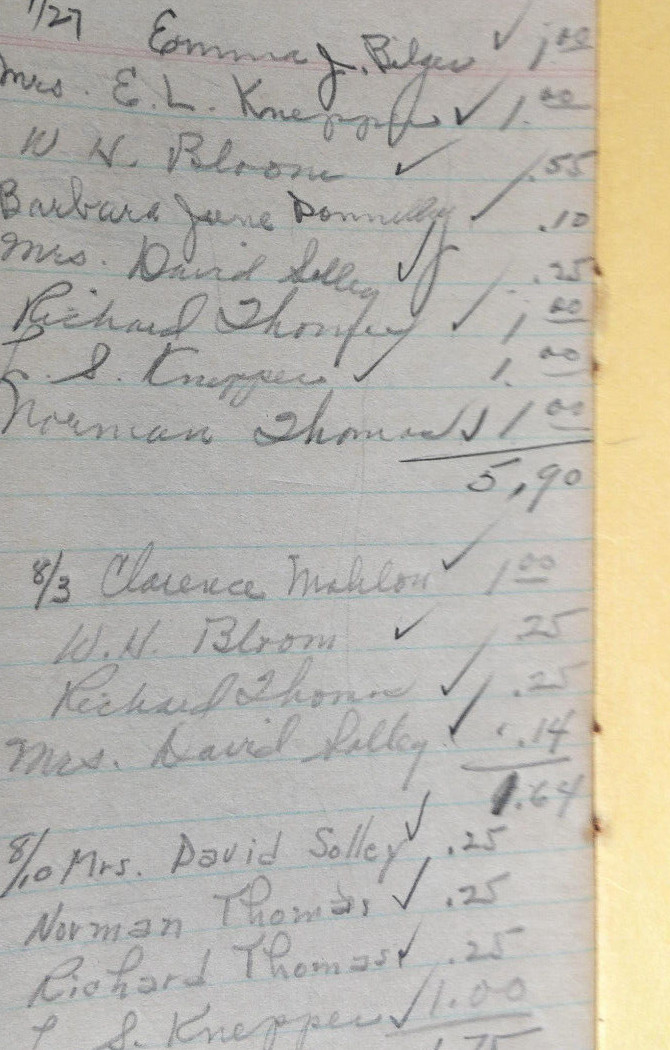 7/27 Emma J. Bilger ✓ 1.00
Mrs. E. L. Knepper ✓ 1.00
W. H. Bloom ✓ .55
Barbara June Donnelly ✓ .10
Mrs. David Solley ✓ .25
Richard Thomas ✓ 1.00
L. S. Knepper ✓ 1.00
Norman Thomas ✓ 1.00
5.90
8/3 Clarence Mahlon ✓ 1.00
W. H. Bloom ✓ .25
Richard Thomas ✓ .25
Mrs. David Solley ✓ .14
1.64
8/10 Mrs. David Solley ✓ .25
Norman Thomas ✓ .25
Richard Thomas ✓ .25
L S. Knepper ✓ 1.00
1.75